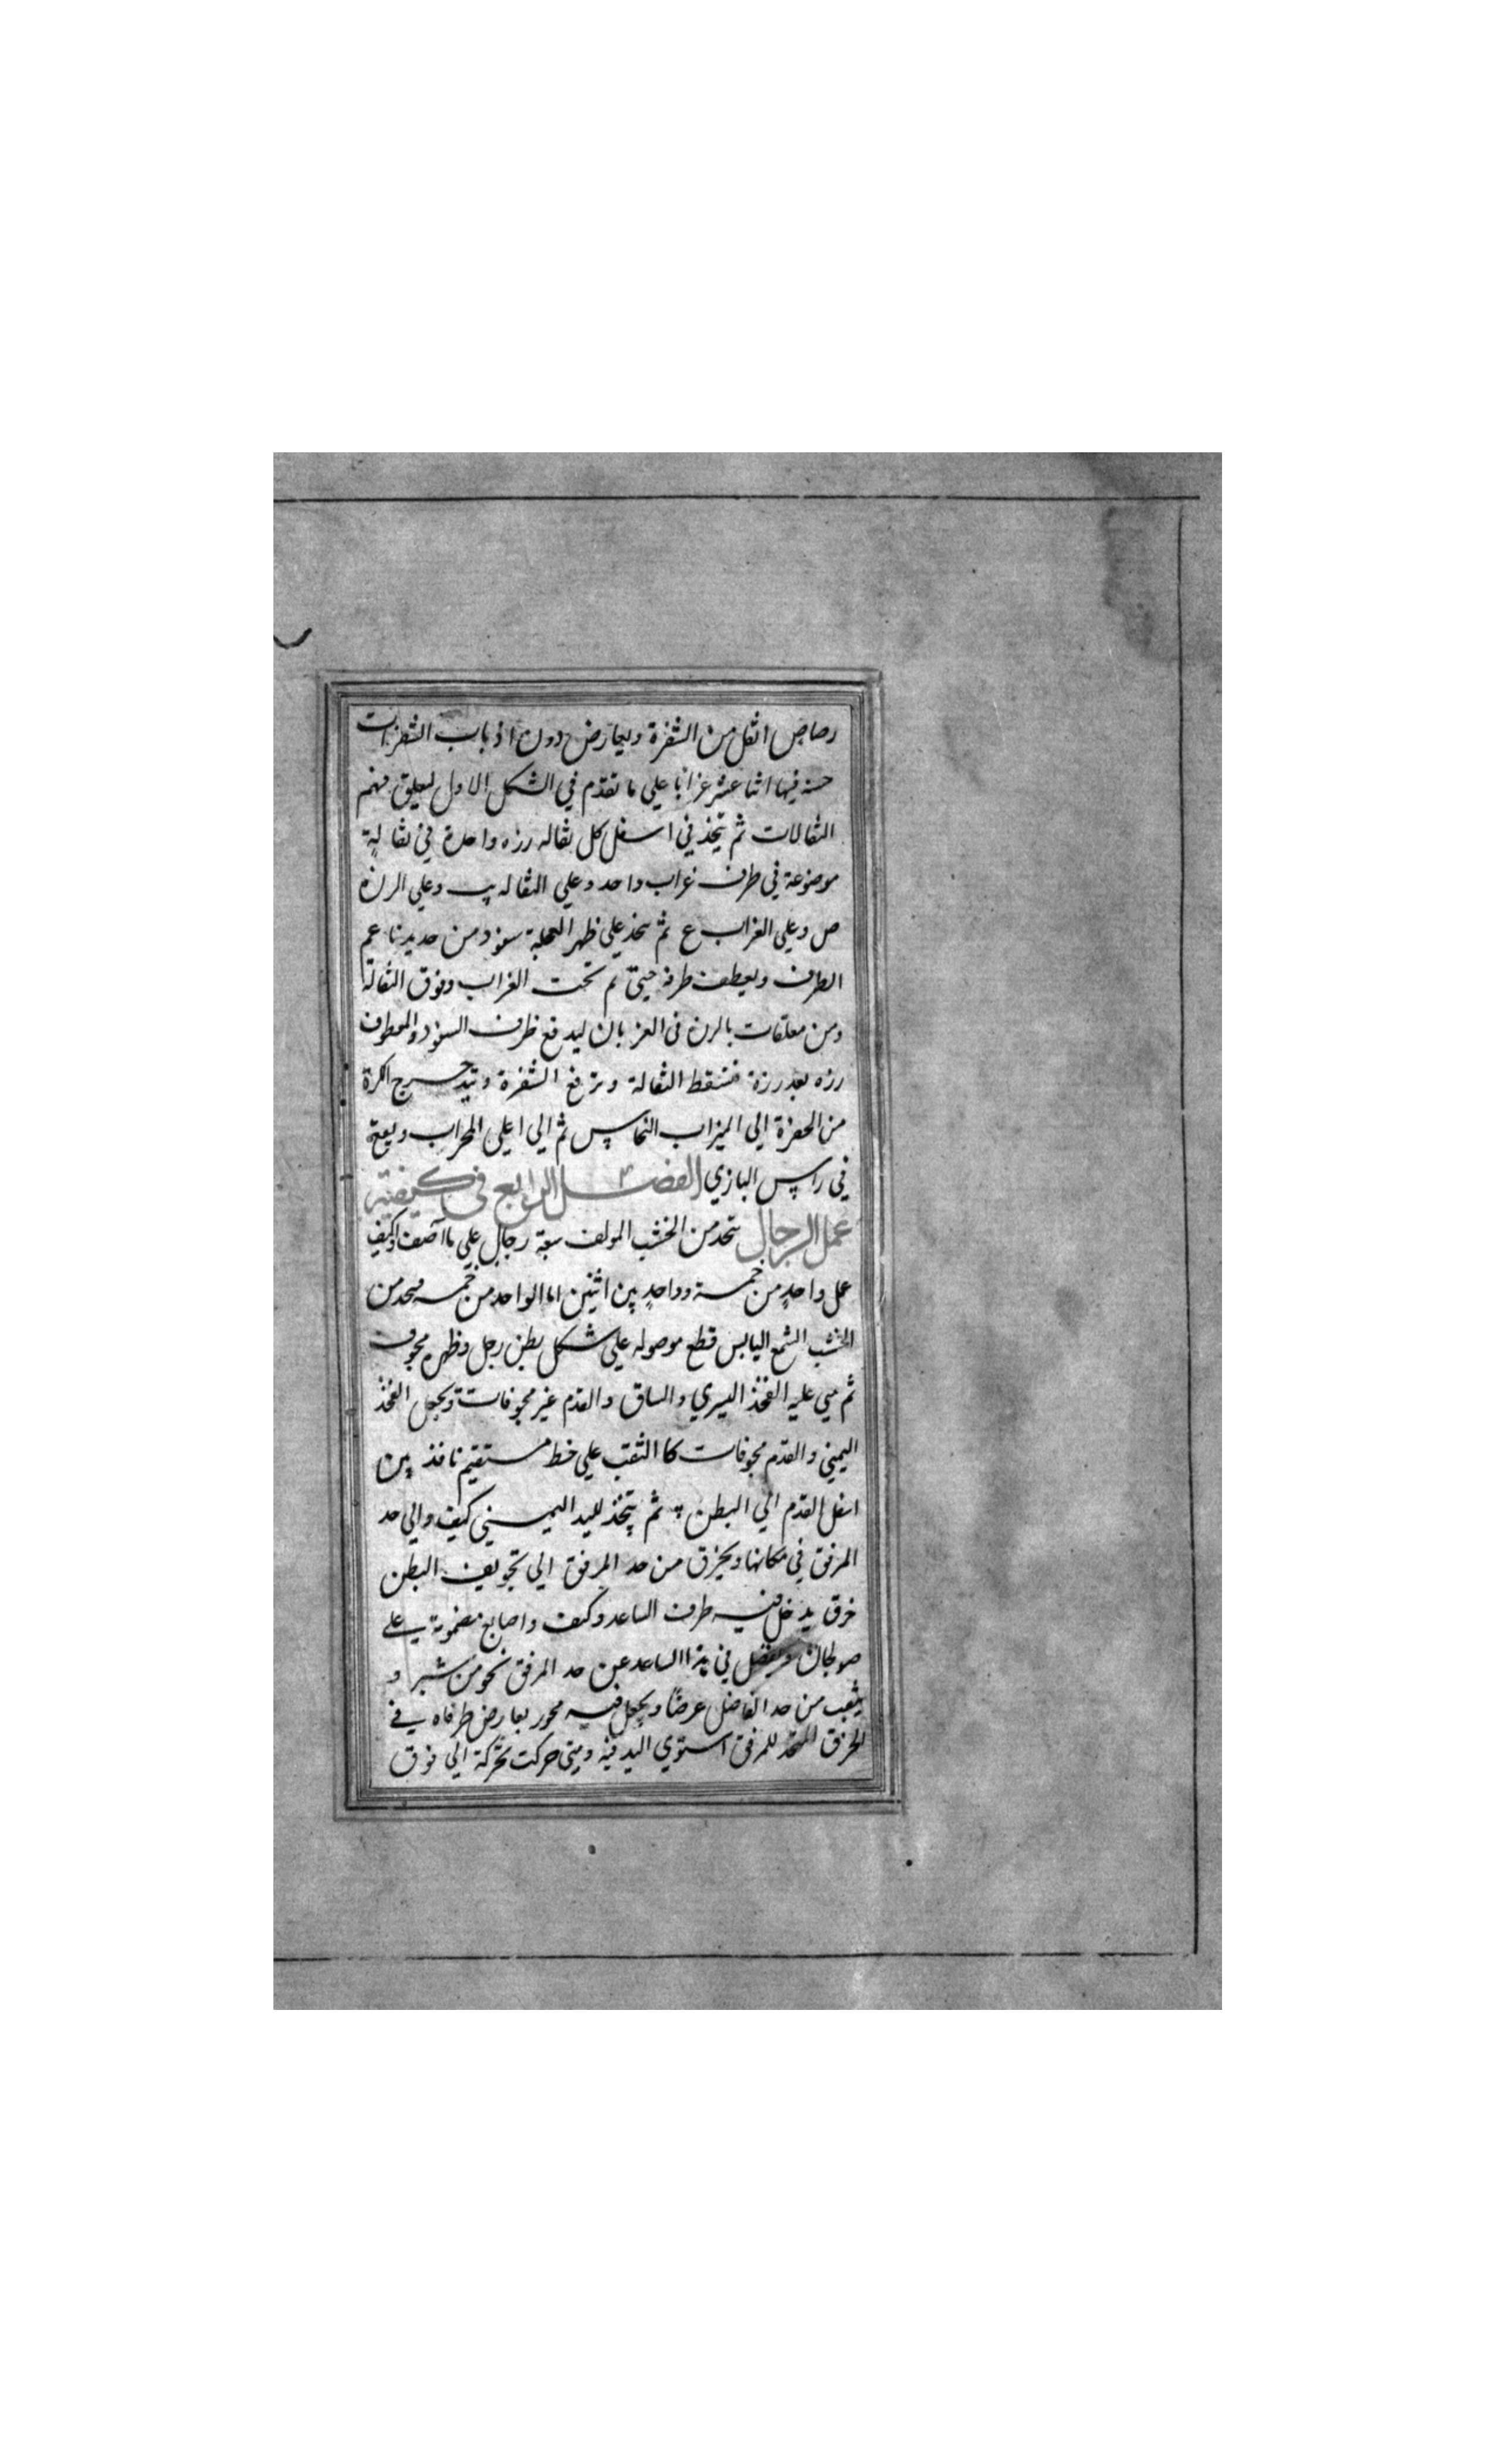 رصاص اثقل من الشفرة ويعارض دون اذباب الشفرات
خسه فيها اثنا عشر غرابا علي ما تقدم في الشكل الاول ليعلق منهم
الثقالات ثم يتخذ في اسفل كل ثقاله رزه واحدة في ثقالة
موضوعة في طرف غراب واحد وعلي الثقاله يب وعلي الرزه
ص وعلي الغراب ع ثم يتخذ علي ظهر العجلة سفود من حديد ناعم
الطرف ويعطف طرفه حتى تم تحت الغراب وفوق الثقالة
ومن معلقات بالرزه في الغربان ليدفع طرف السفود والمعطوف
رزه بعد رزة فتسقط الثقالة وترفع الشفرة وتتدحرج اكرة
من الحفرة الي الميزاب النحاس ثم الي اعلي المحراب ويقع
في راس البازي الفصل الرابع في كيفية
عمل الرجال يتخذ من الخشب المولف سبعة رجال علي ما اصف وكيف
عمل واحد من خمسة وواحد من اثنين اما الواحد من خمسه فيتخذ من
الخشب الشمع اليابس قطع موصوله علي شكل بطن رجل وظهره مجوف
ثم يبني عليه الفخذ اليسري والساق والقدم غير مجوفات ويجعل الفخذ
اليمني والقدم مجوفات كا الثقب علي خط مستقيم نافذ من
اسفل القدم الي البطن ثم يتخذ لليد اليمني كتف والي حد
المرفق في مكانها ويخرق من حد المرفق الي تجويف البطن
خرق يدخل فيه طرف الساعد وكف واصابع مضمومة علي
صولجان ويفضل في هذا الساعد عن حد المرفق نحو من شبر و
يثقب من حد الفاضل عرضا ويجعل فيه محور يعارض طرفاه في
الخرق المتخذ للمرفق استوي اليد فيه ومتي حركت بحركة الي فوق